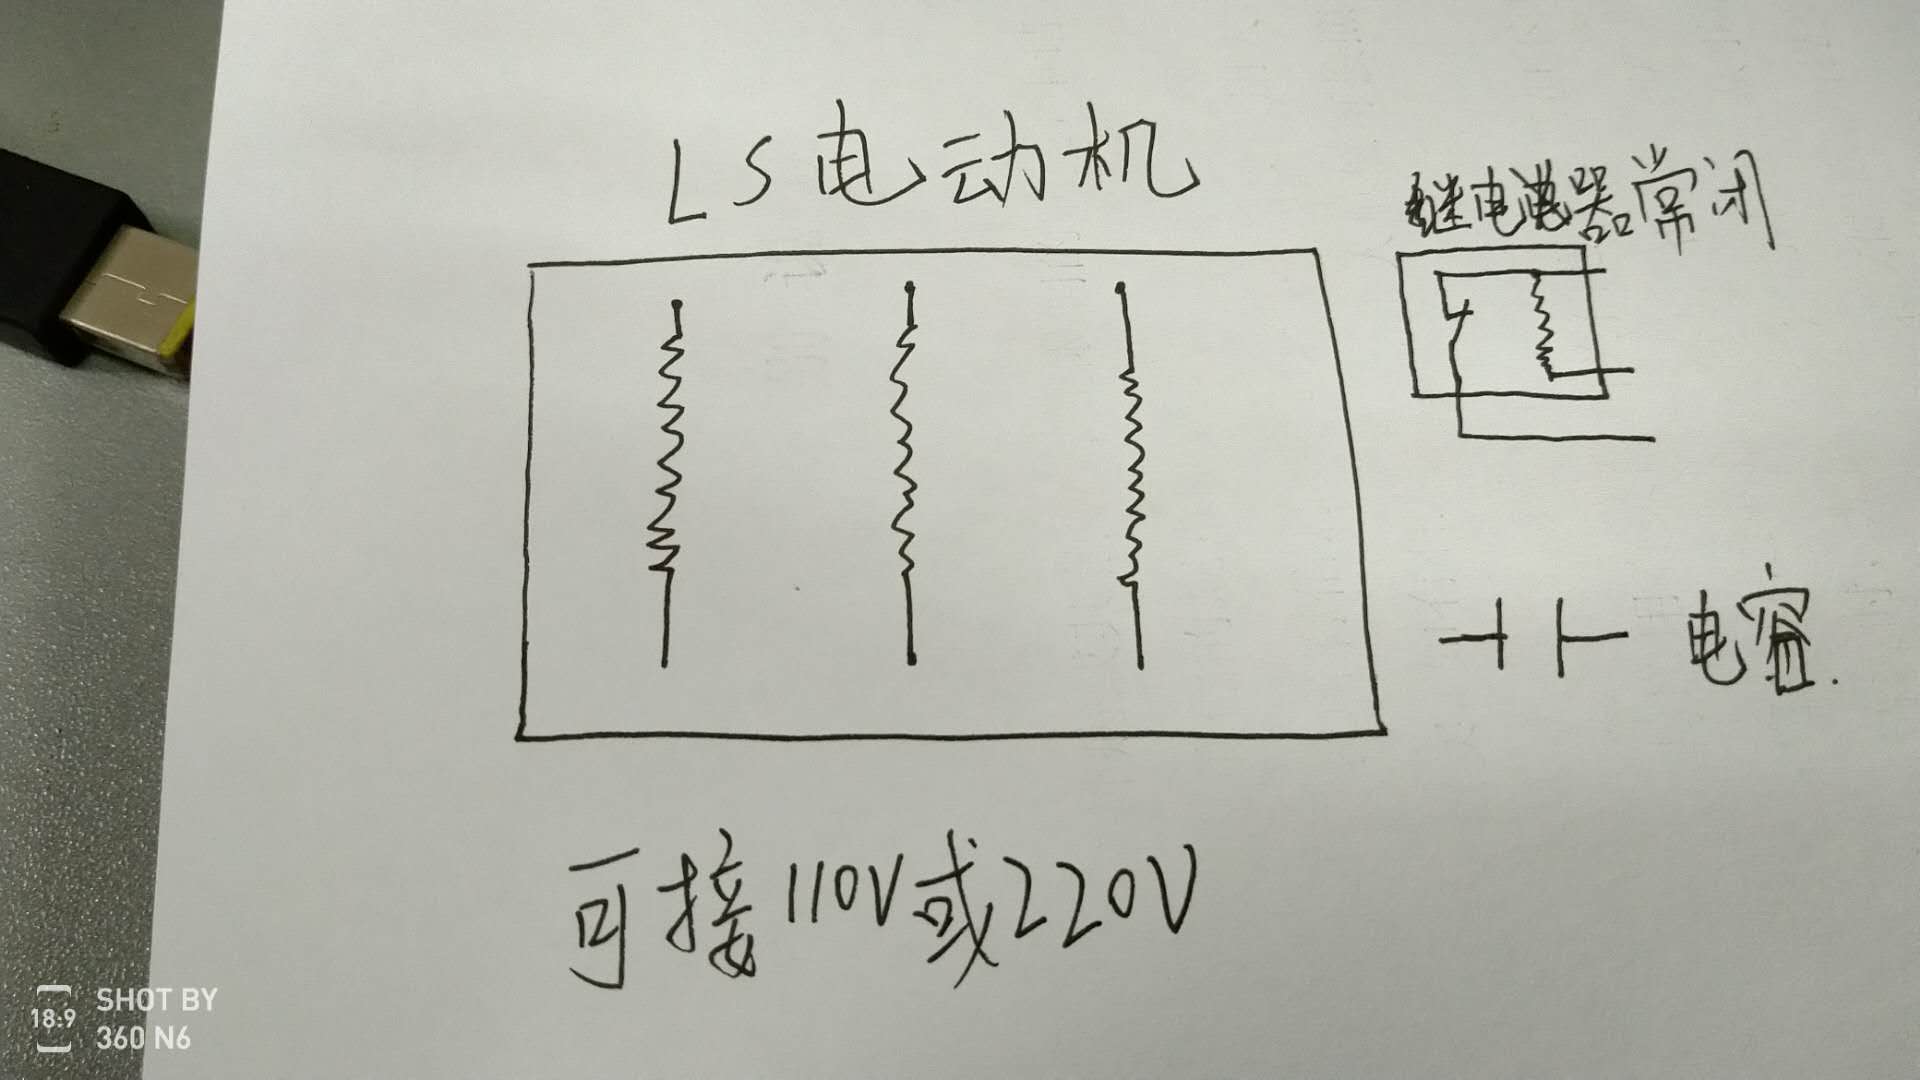 LS电动机
继电器常闭
电容.
可接110V或220V
18:9
SHOT BY
360 N6